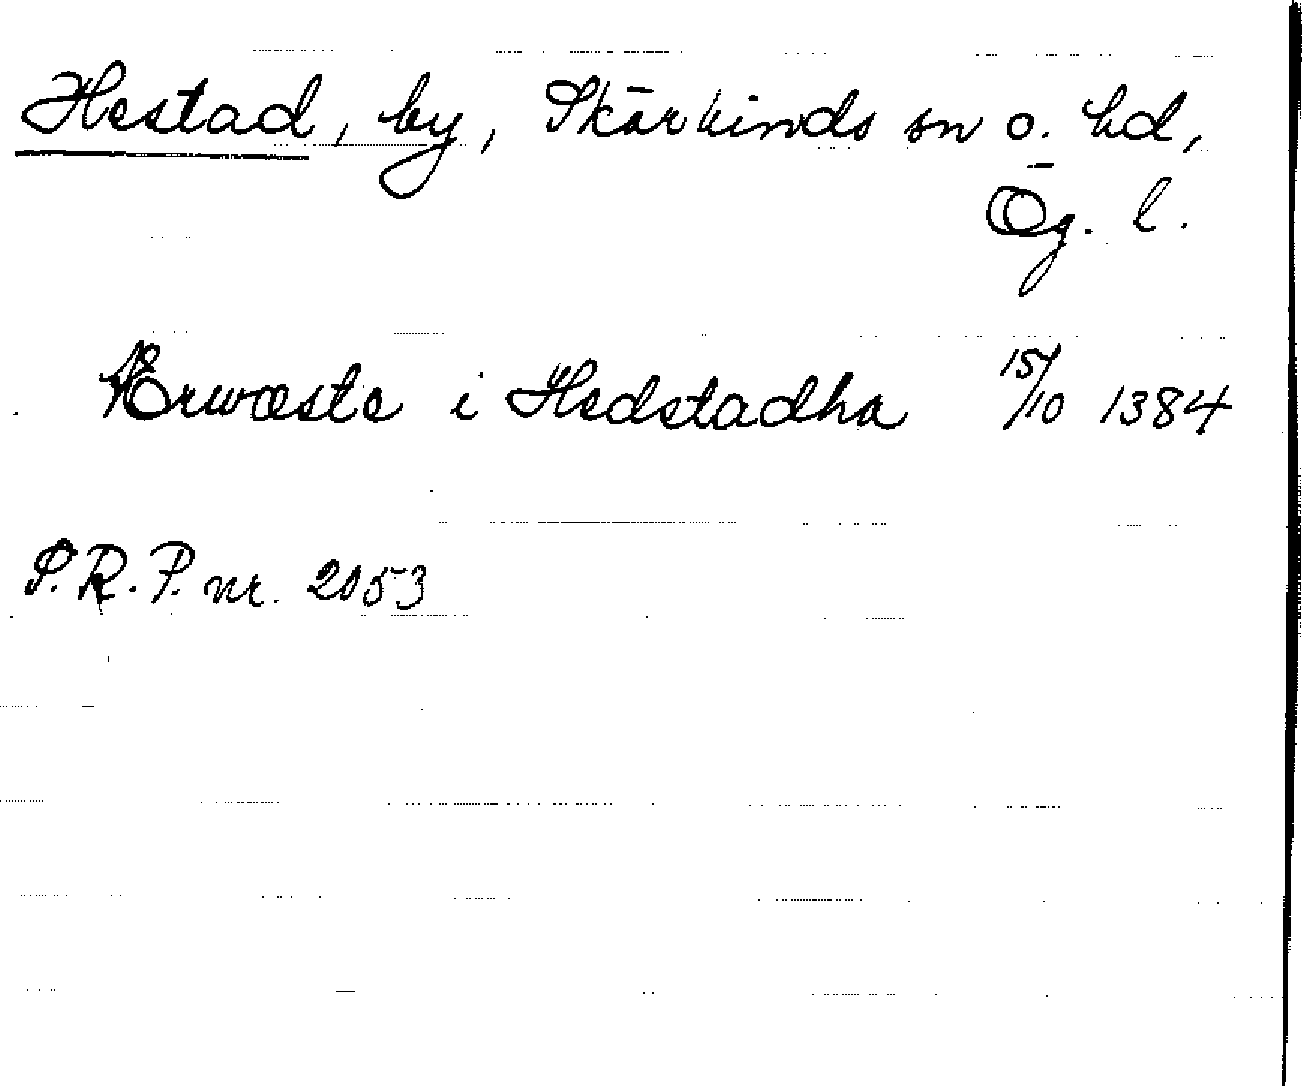 Hestad, by, Skärkinds sn o. hd,
Ög. l.
i Hedstadha 15/10 1384
S.R.P. nr. 2053